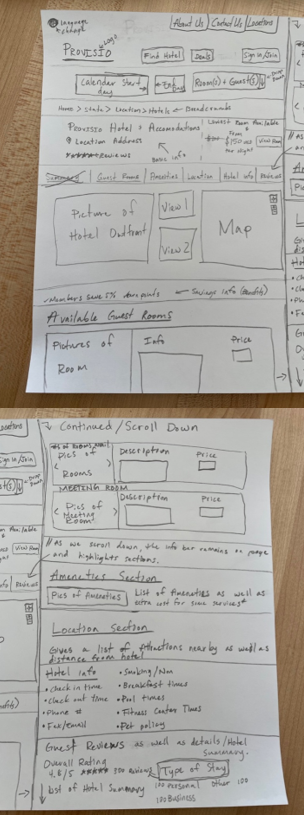 language
About Us | Contact Us | Locations
Logo
PROVISIO
Find Hotel
Deals
Sign in/Join
Calendar Start
day
Room(s) + Guest(s)
Home > State > Location > Hotels ← Breadcrumbs
Provisio Hotel + Accomodations
Location Address
Reviews
Basic info
$150
View Room
Summary
Guest Rooms
Amenities
Location
Hotel Info
Reviews
Picture of
Hotel Outfront
View 1
View 2
Map
Members Save 5% door points
← Savings info (Benefits)
Available Guest Rooms
Pictures of
Room
Info
Price
↓ Continued/Scroll Down
Pics of
Rooms
Description
Price
MEETING ROOM
Pics of
Meeting
Room
Description
Price
As we scroll down, the info bar remains on page
and highlights sections.
Amenities Section
Pics of Amenities
List of Amenities as well as
extra cost for some services*
Location Section
Gives a list of attractions nearby as well as
distance from hotel
Hotel info
• check in time
• check out time
• Phone #
• Fax/email
• Smoking/Non
• Breakfast times
• Pool times
• Fitness Center Times
• Pet policy
Guest Reviews as well as details/Hotel
Summary.
Overall Rating
4.8/5 ***** 300 reviews
Type of Stay
List of Hotel Summary
100 Personal
other 100
100 Business